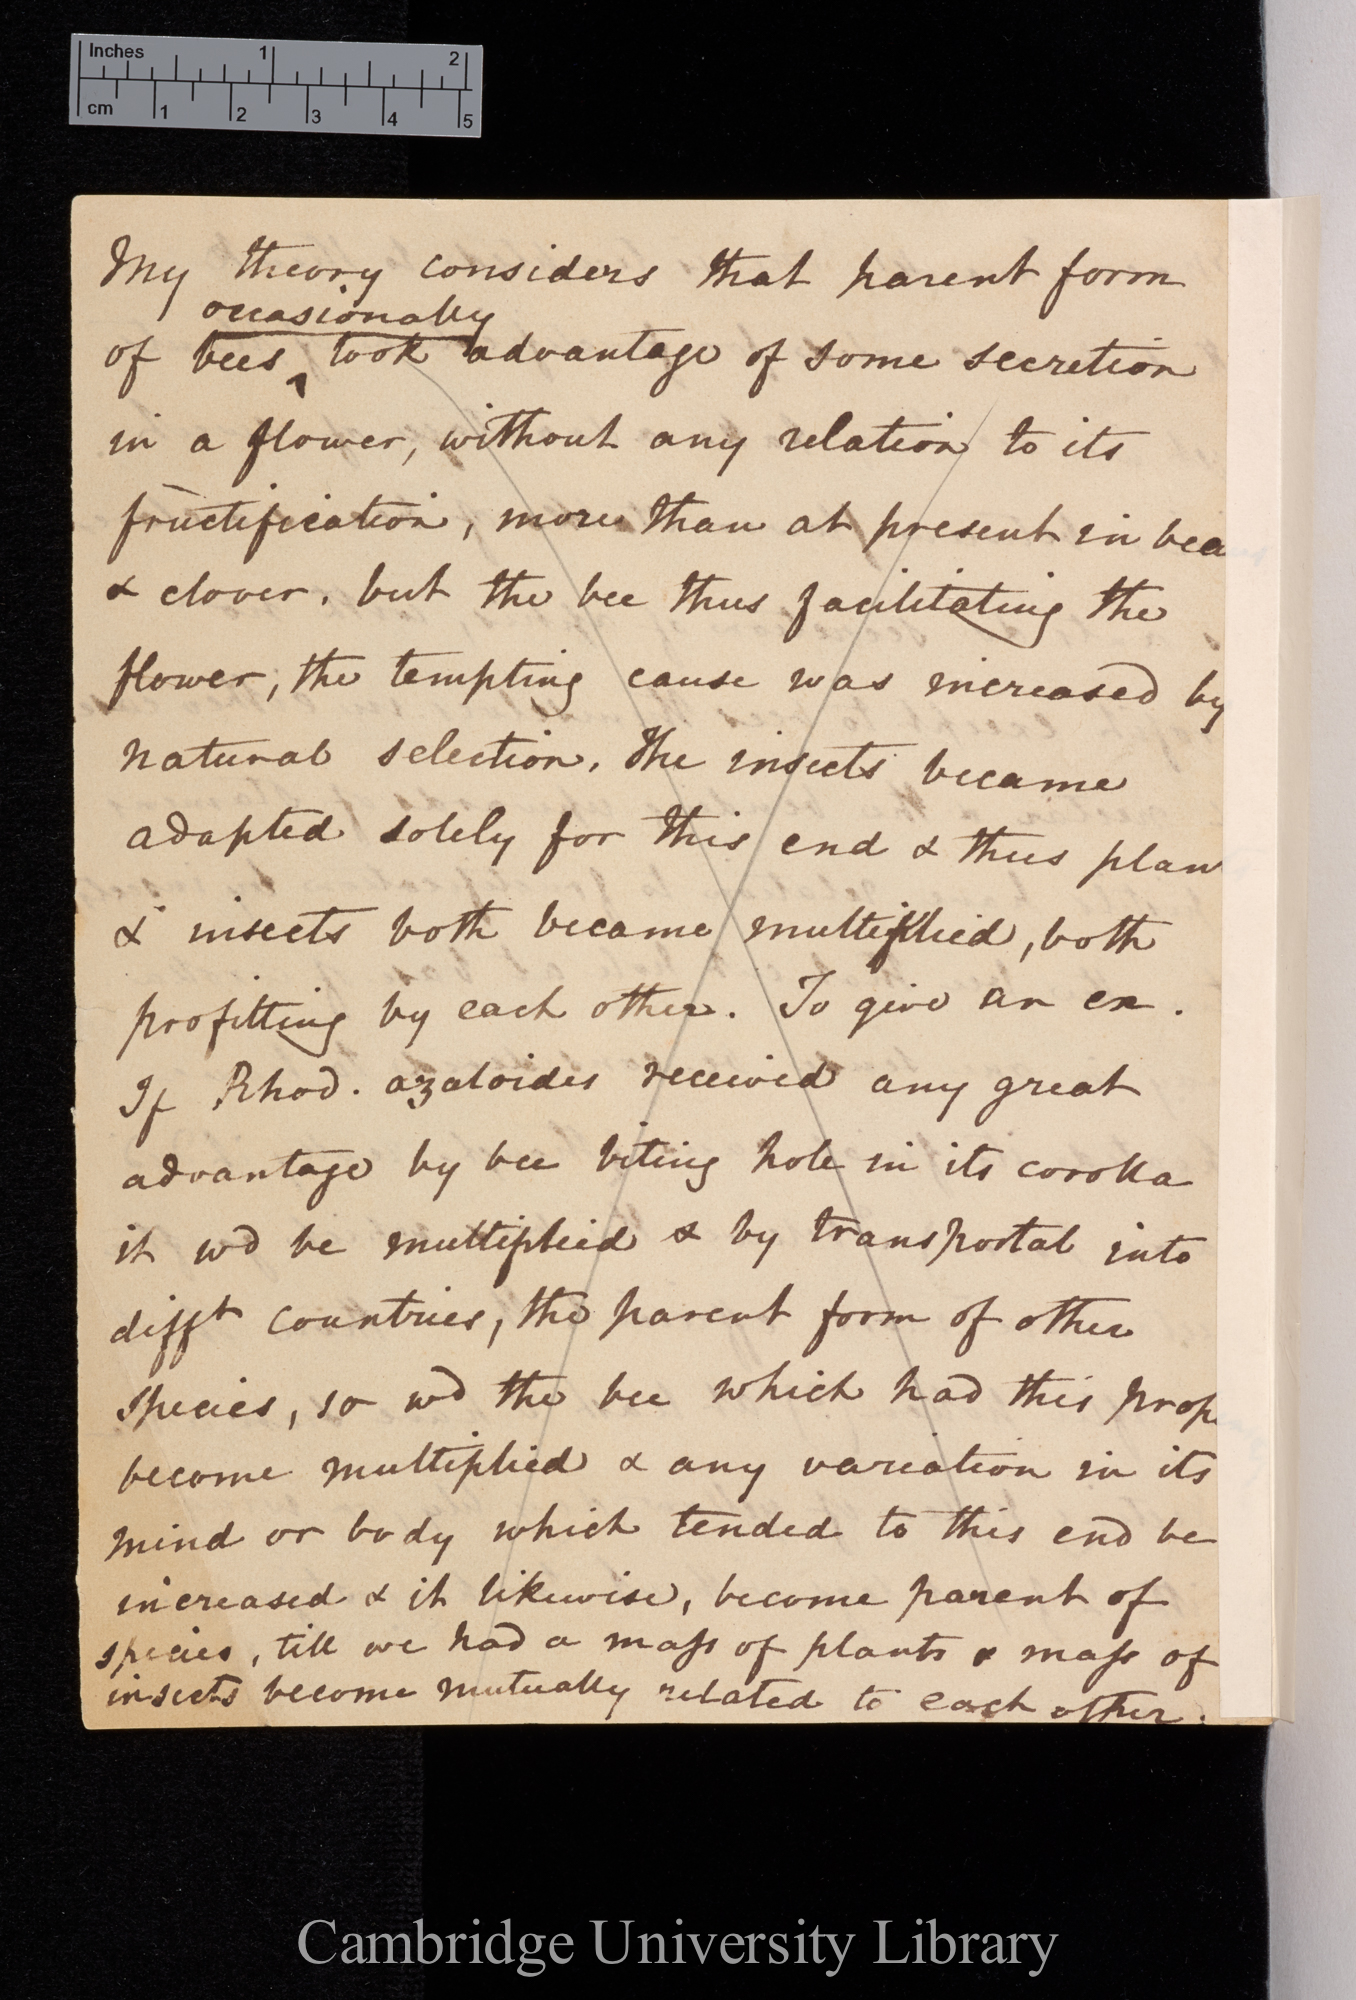 Inches 1 2
cm 1 2 3 4 5
My theory considers that parent form
occasionally
of bees took advantage of some secretion
in a flower, without any relation to its
fructification, more than at present in bea
& clover, but the bee thus facilitating the
flower, the tempting cause was increased by
natural selection. The insects became
adapted solely for this end & thus plan
& insects both became multiplied, both
profitting by each other. To give an ex.
If Rhod. azaloides received any great
advantage by bee biting hole in its corolla
it wd be multiplied & by transportal into
difft countries, the parent form of other
species, so wd the bee which had this prop
become multiplied & any variation in its
mind or body which tended to this end be
increased & it likewise, become parent of
species, till we had a mass of plants & mass of
insects become mutually related to each other.
Cambridge University Library